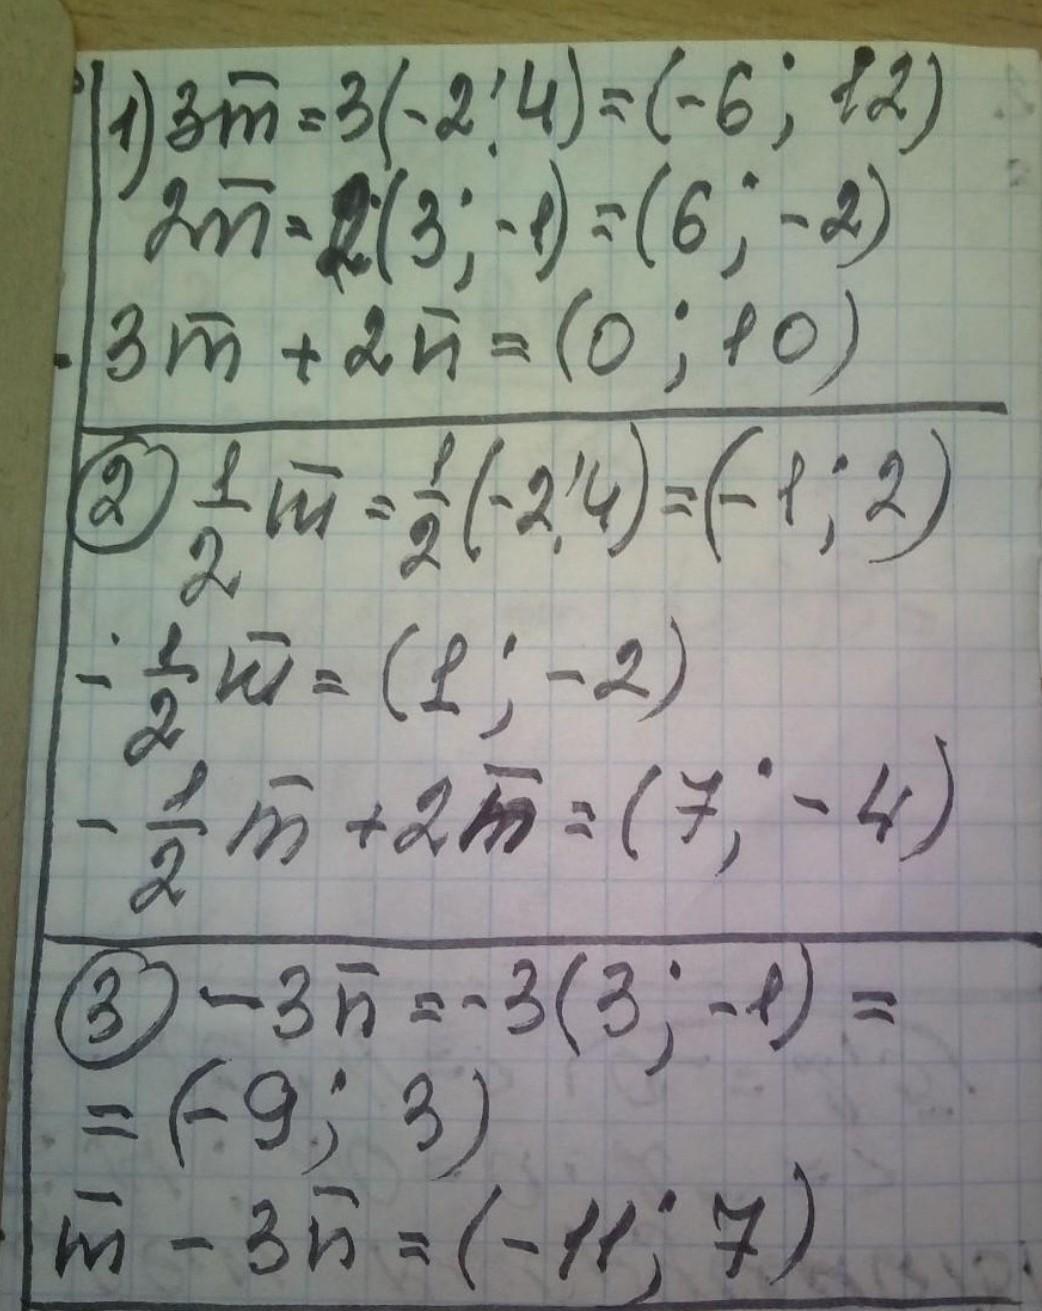 1) 3m̅ = 3(-2; 4) = (-6; 12)
2n̅ = 2(3; -1) = (6; -2)
3m̅ + 2n̅ = (0; 10)
2) 1/2 m̅ = 1/2 (-2; 4) = (-1; 2)
- 1/2 m̅ = (1; -2)
- 1/2 m̅ + 2m̅ = (7; -4)
3) -3n̅ = -3(3; -1) =
= (-9; 3)
m̅ - 3n̅ = (-11; 7)